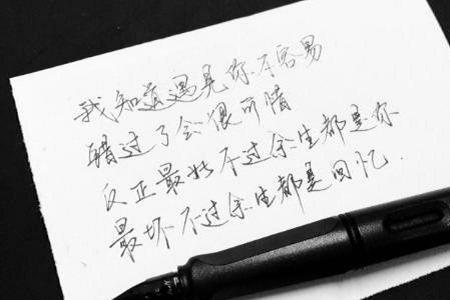 我知道遇见你不容易
错过了会很可惜
反正最好不过余生都是你
最坏不过余生都是回忆.